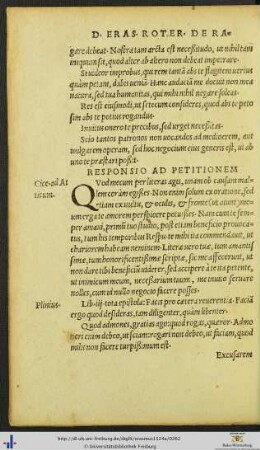 D. ERAS. ROTER. DE RA-
gare debeat. Nostra tam arcta est necessitudo, ut nihil tam
iniquum sit, quod alter ab altero non debeat impetrare.
Si uidear improbus, qui rem tantā abs te flagitem uerius
quàm petam, dabis ueniā. Hanc audaciā me docuit non mea
natura, sed tua humanitas, qui mihi nihil negare soleas.
Res est eiusmodi, ut si tecum consideres, quod abs te peto
sim abs te potius rogandus.
Inuitus onero te precibus, sed urget necessitas.
Scio tantos patronos non uocandos ad mediocrem, aut
uulgarem operam, sed hoc negocium eius generis est, ut ab
uno te præstari possit.
RESPONSIO AD PETITIONEM
Cice. ad At
ticum.
Quod mecum per literas agis, unam ob causam mal-
lem coràm egisses. Non enim solum ex oratione, sed
etiam ex uultu, & oculis, & fronte (ut aiunt) me-
um erga te amorem perspicere potuisses. Nam cum te sem-
per amaui, primū tuo studio, post etiam beneficio prouoca-
tus, tum his temporibus Respu. te mihi ita commendauit, ut
chariorem habeam neminem. Literæ uero tuæ, cum amantis
simè, tum honorificentissimè scriptæ, sic me affecerunt, ut
non dare tibi beneficiū uiderer, sed accipere à te ita petente,
ut inimicum meum, necessarium tuum, me inuito seruare
nolles, cum id nullo negocio facere posses.
Plinius.
quod desideras, tam diligenter, quàm libenter.
Quod admones, gratias ago: quod rogas, queror. Admo
neri enim debeo, ut sciam: rogari non debeo, ut faciam, quod
mihi non facere turpissimum est.
Excusarem
http://dl.ub.uni-freiburg.de/diglit/erasmus1524a/0202
© Universitätsbibliothek Freiburg